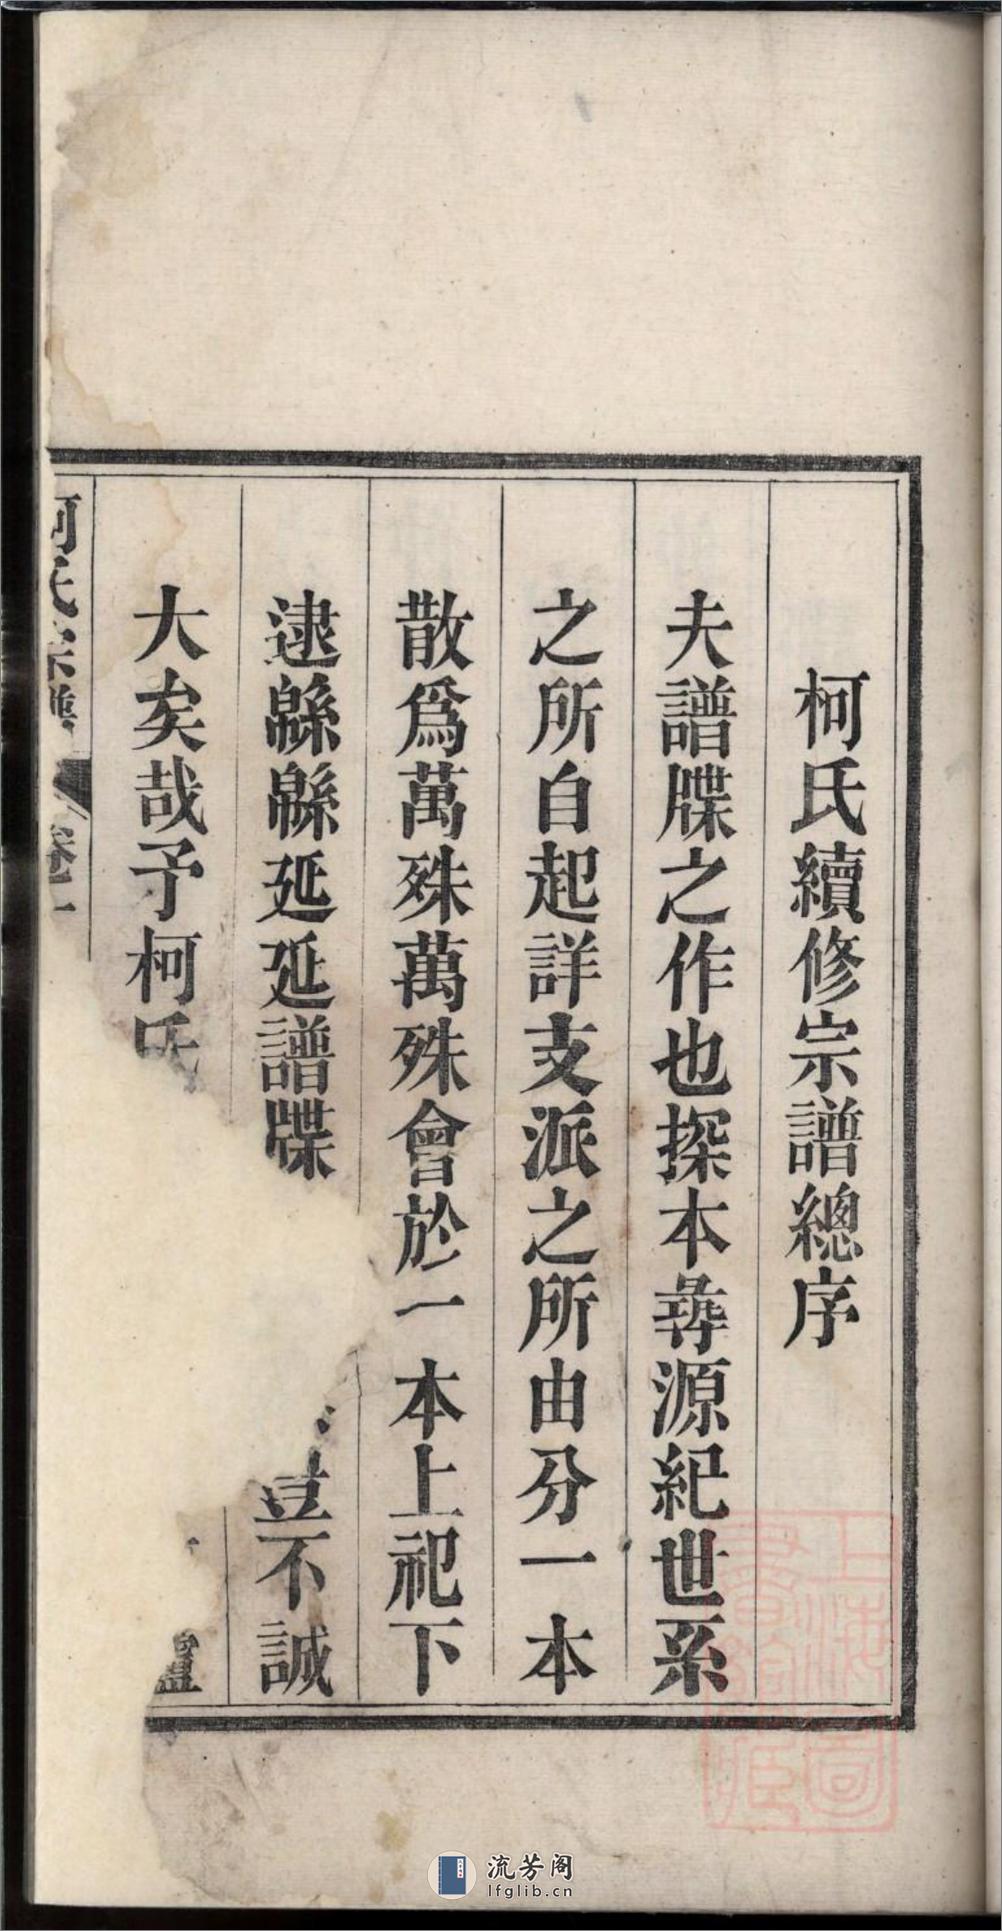 柯氏續修宗譜總序
夫譜牒之作也探本尋源紀世系
之所自起詳支派之所由分一本
散爲萬殊萬殊會於一本上祀下
逮緜緜延延譜牒
豈不誠
大矣哉予柯氏
柯氏宗譜
卷一
上海圖書館藏
流芳阁
lfglib.cn